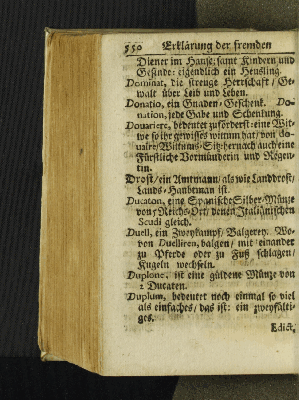 550 Erklärung der fremden
Diener im Hause; samt Kindern und
Gesinde: eigendlich ein Heusling.
Dominat, die strenge Herrschaft / Ge-
walt über Leib und Leben.
Donatio, ein Gnaden-Geschenk. Do-
nation, jede Gabe und Schenkung.
Douariere, bedeutet zuförderst eine Wit-
we so ihr gewisses wittum hat / von do-
uaire / Wittums-Sitz: hernach auch eine
Fürstliche Vormünderin und Regen-
tin.
Drost / ein Amtmann / als wie Landdrost /
Lands-Haubtman ist.
Ducaton, eine Spanische Silber-Müntze
von Reichs-Ort / denen Italiänischen
Scudi gleich.
Duell, ein Zweykampf / Balgerey. Wo-
von Duelliren, balgen / mit einander
zu Pferde oder zu Fuß schlagen /
Kugeln wechseln.
Duplone, ist eine güldene Müntze von
2 Ducaten.
Duplum, bedeutet noch einmal so viel
als einfaches / das ist: ein zweyfälti-
ges.
Edict,